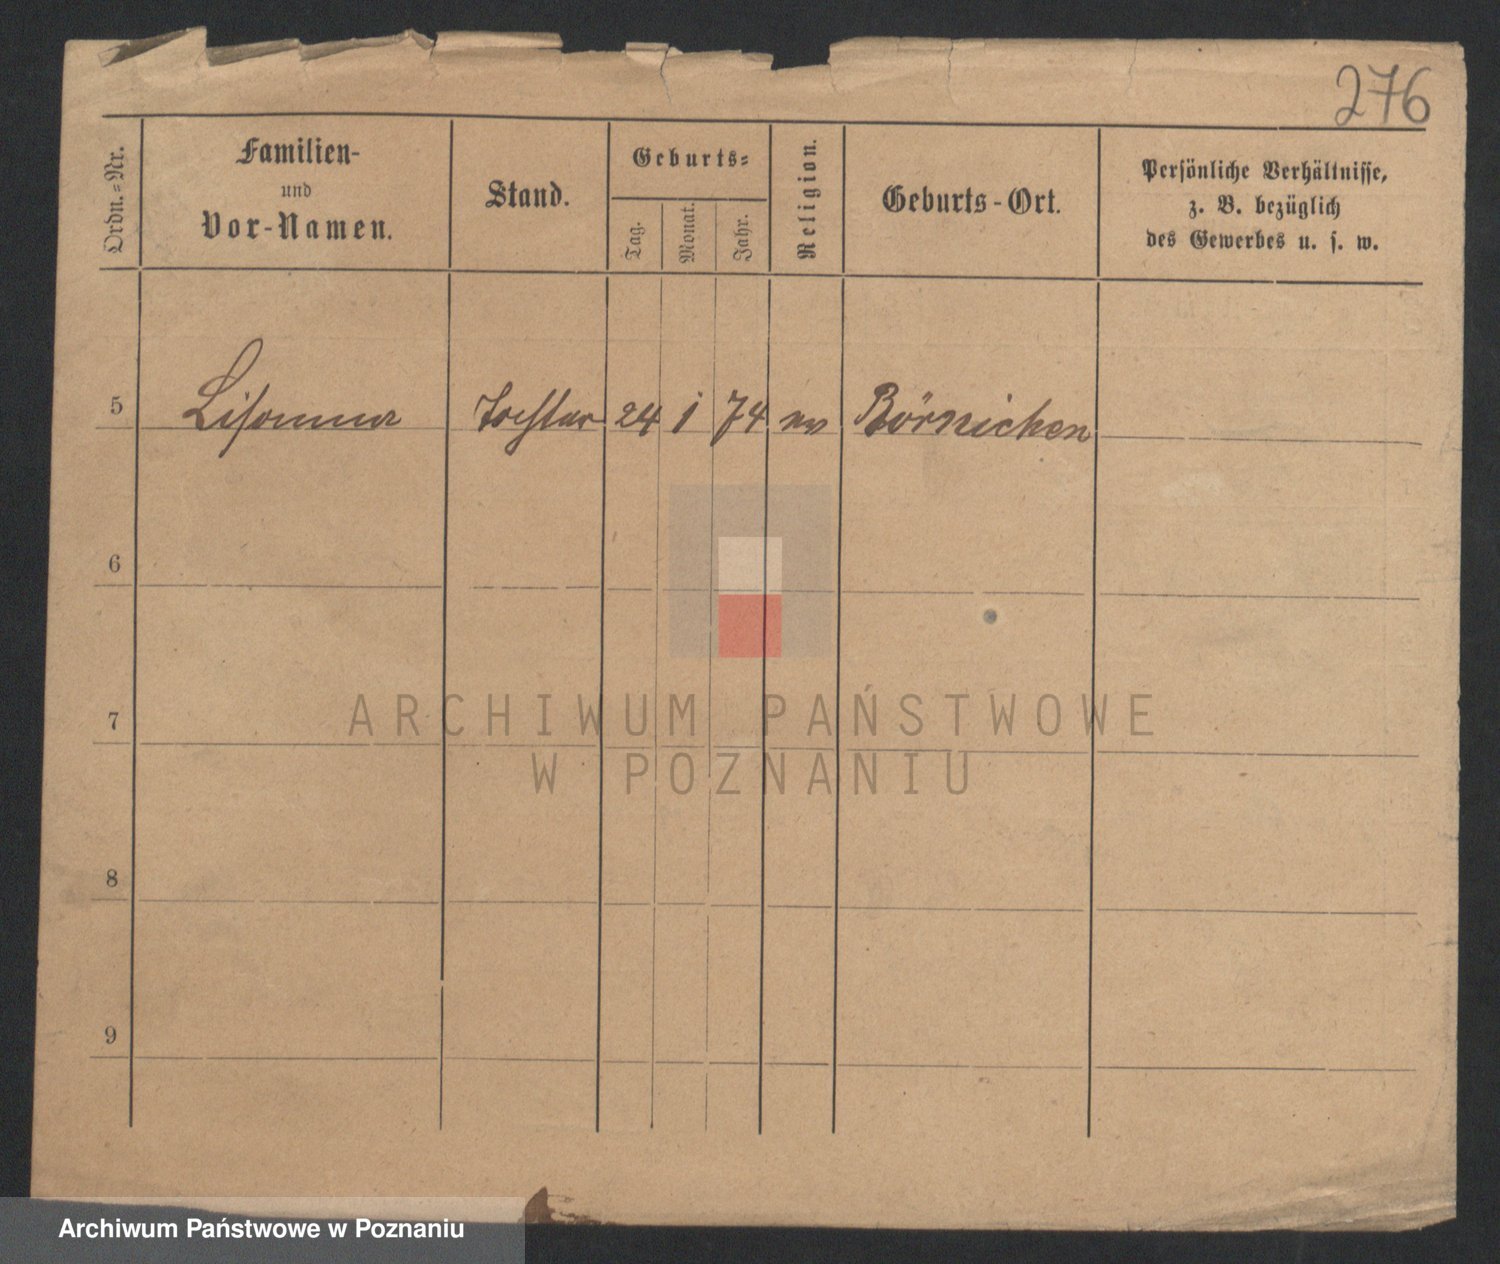 276
Ordn.=Nr.
Familien-
und
Vor-Namen.
Stand.
Geburts=
Tag.
Monat.
Jahr.
Religion.
Geburts-Ort.
Persönliche Verhältnisse,
z. B. bezüglich
des Gewerbes u. s. w.
5 Tochter 24 1 74 ev Börnichen
6
7
8
9
ARCHIWUM PAŃSTWOWE
W POZNANIU
Archiwum Państwowe w Poznaniu